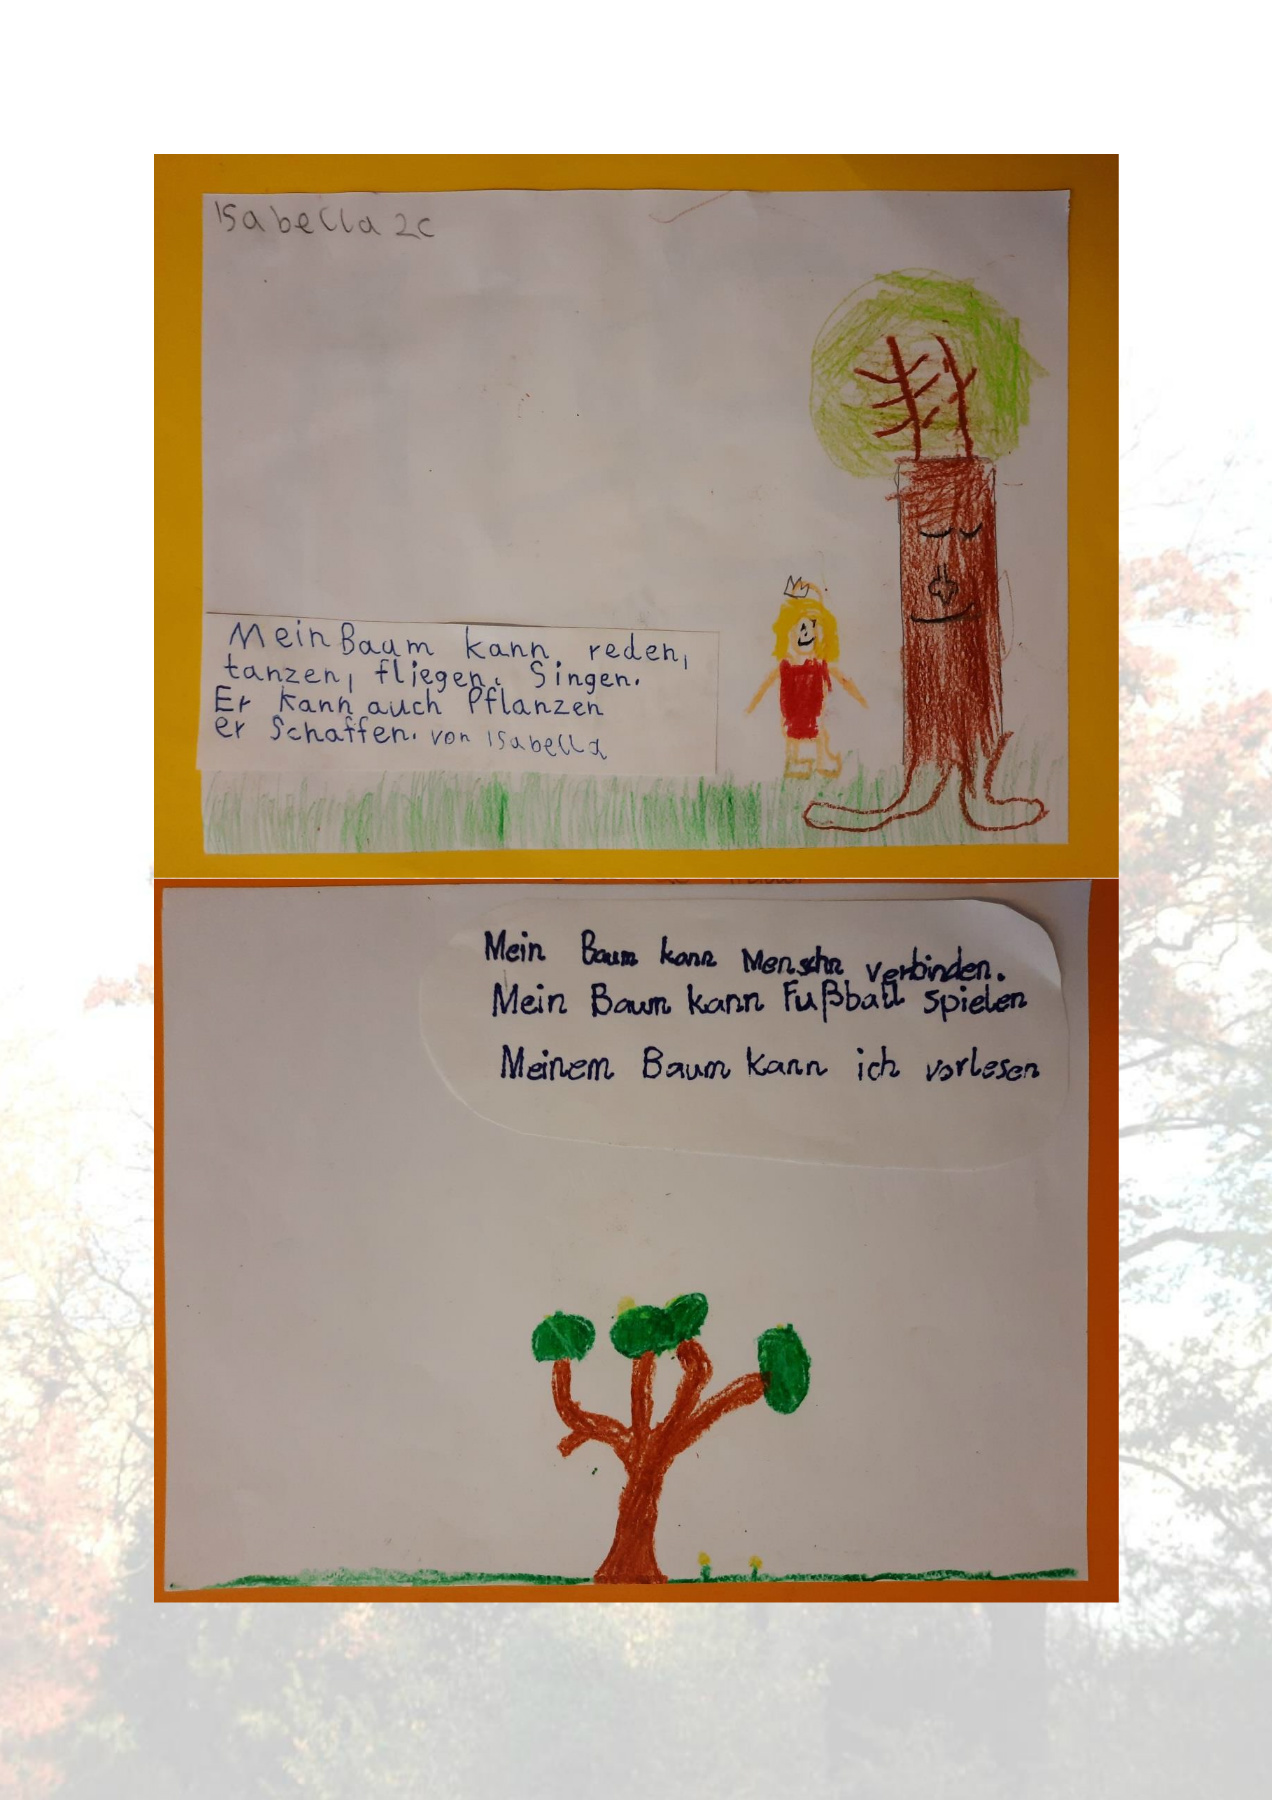 Isabella 2c
Mein Baum kann reden,
tanzen, fliegen, Singen.
Er kann auch Pflanzen
er Schaffen. von Isabella
Mein Baum kann Menschn verbinden.
Mein Baum kann Fußball spielen
Meinem Baum kann ich vorlesen